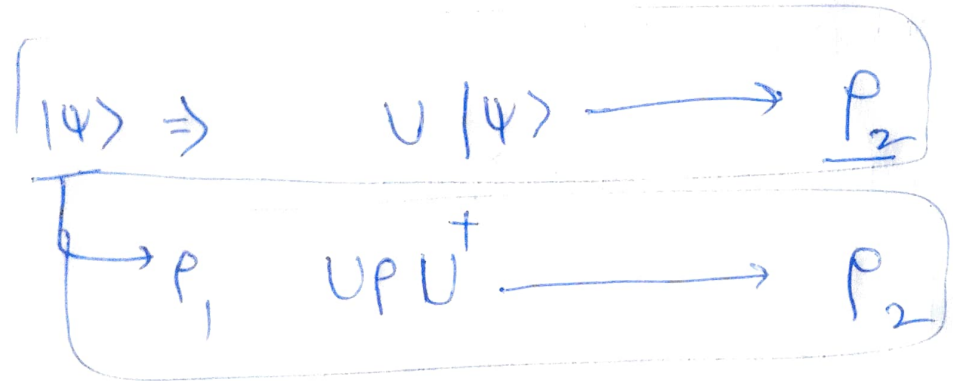 |ψ⟩ ⇒ U |ψ⟩ → ρ₂
→ ρ₁ UρU† → ρ₂